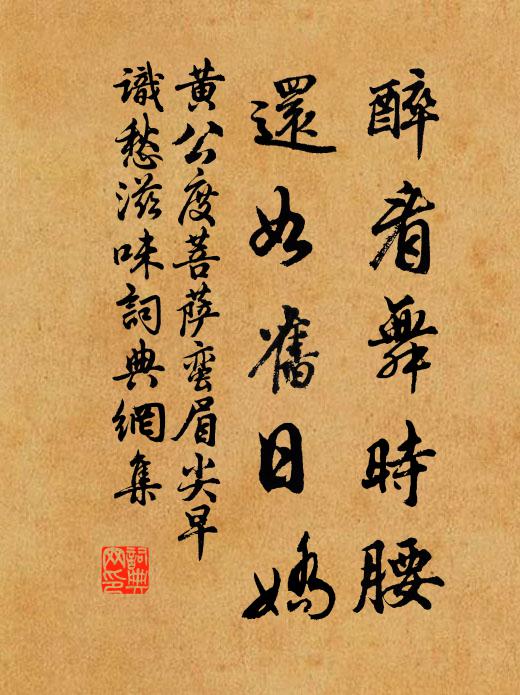 醉看舞時腰
還如舊日嬌
黃公度菩薩蠻眉尖早
識愁滋味詞典網集
詞典
网印